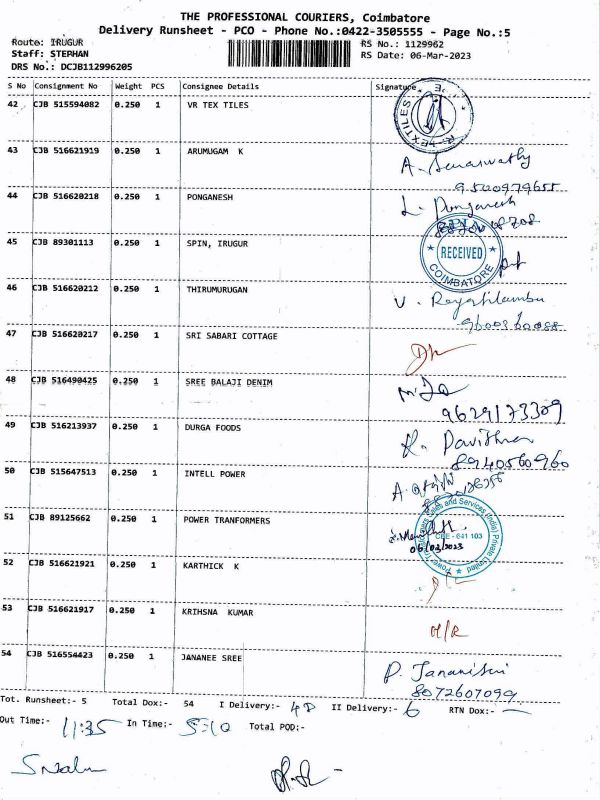 THE PROFESSIONAL COURIERS, Coimbatore
Delivery Runsheet - PCO - Phone No.:0422-3505555 - Page No.:5
Route: IRUGUR
RS No.: 1129962
Staff: STEPHAN
RS Date: 06-Mar-2023
DRS No.: DCJB112996205
S No Consignment No Weight PCS Consignee Details Signature
42 CJB 515594082 0.250 1 VR TEX TILES
43 CJB 516621919 0.250 1 ARUMUGAM K
A. Saraswathy
9500979655
44 CJB 516620218 0.250 1 PONGANESH
L. Ponganesh
45 CJB 89301113 0.250 1 SPIN, IRUGUR
RECEIVED
COIMBATORE
46 CJB 516620212 0.250 1 THIRUMURUGAN
V.
47 CJB 516620217 0.250 1 SRI SABARI COTTAGE
48 CJB 516490425 0.250 1 SREE BALAJI DENIM
9629173309
49 CJB 516213937 0.250 1 DURGA FOODS
R. Pavithra
8940560960
50 CJB 515647513 0.250 1 INTELL POWER
51 CJB 89125662 0.250 1 POWER TRANFORMERS
and Services (India) Private Limited
CBE - 641 103
06/03/2023
52 CJB 516621921 0.250 1 KARTHICK K
D/L
53 CJB 516621917 0.250 1 KRIHSNA KUMAR
54 CJB 516554423 0.250 1 JANANEE SREE
P. Jananisri
8072607099
Tot. Runsheet:- 5 Total Dox:- 54 I Delivery:- 48 II Delivery:- 6 RTN Dox:- —
Out Time:- 11:35 In Time:- 5:10 Total POD:-